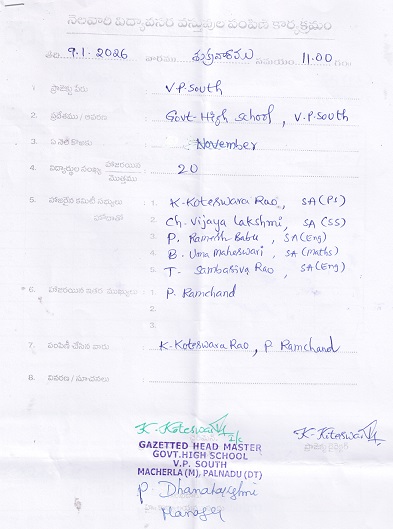 నెలవారి విద్యావసర వస్తువుల పంపిణీ కార్యక్రమం
తేది 9.1.2026 వారము శుక్రవారము సమయం 11.00 గం॥
1. ప్రాజెక్టు పేరు V.P.South
2. ప్రదేశము / Govt High School, V.P.South
3. ఏ నెల కొరకు November
4. విద్యార్థుల సంఖ్య హాజరయిన 20
మొత్తము
5. హాజరైన కమిటీ సభ్యులు 1. K. Koteswara Rao, SA(PS)
హోదాతో 2. Ch. Vijaya Lakshmi, SA (SS)
3. P. Ramesh Babu, SA(Eng)
4. B. Uma maheswari, SA (Maths)
5. T. Sambasiva Rao, SA(Eng)
* 6. హాజరయిన ఇతర ముఖ్యులు 1. P. Ramchand
2.
3.
7. పంపిణీ చేసిన వారు K. Koteswara Rao, P Ramchand
8. వివరణ / సూచనలు
K. Koteswar I/c K. Koteswar
GAZETTED HEAD MASTER
GOVT.HIGH SCHOOL
V.P. SOUTH
MACHERLA (M), PALNADU (DT)
P Dhanalakshmi
Manager